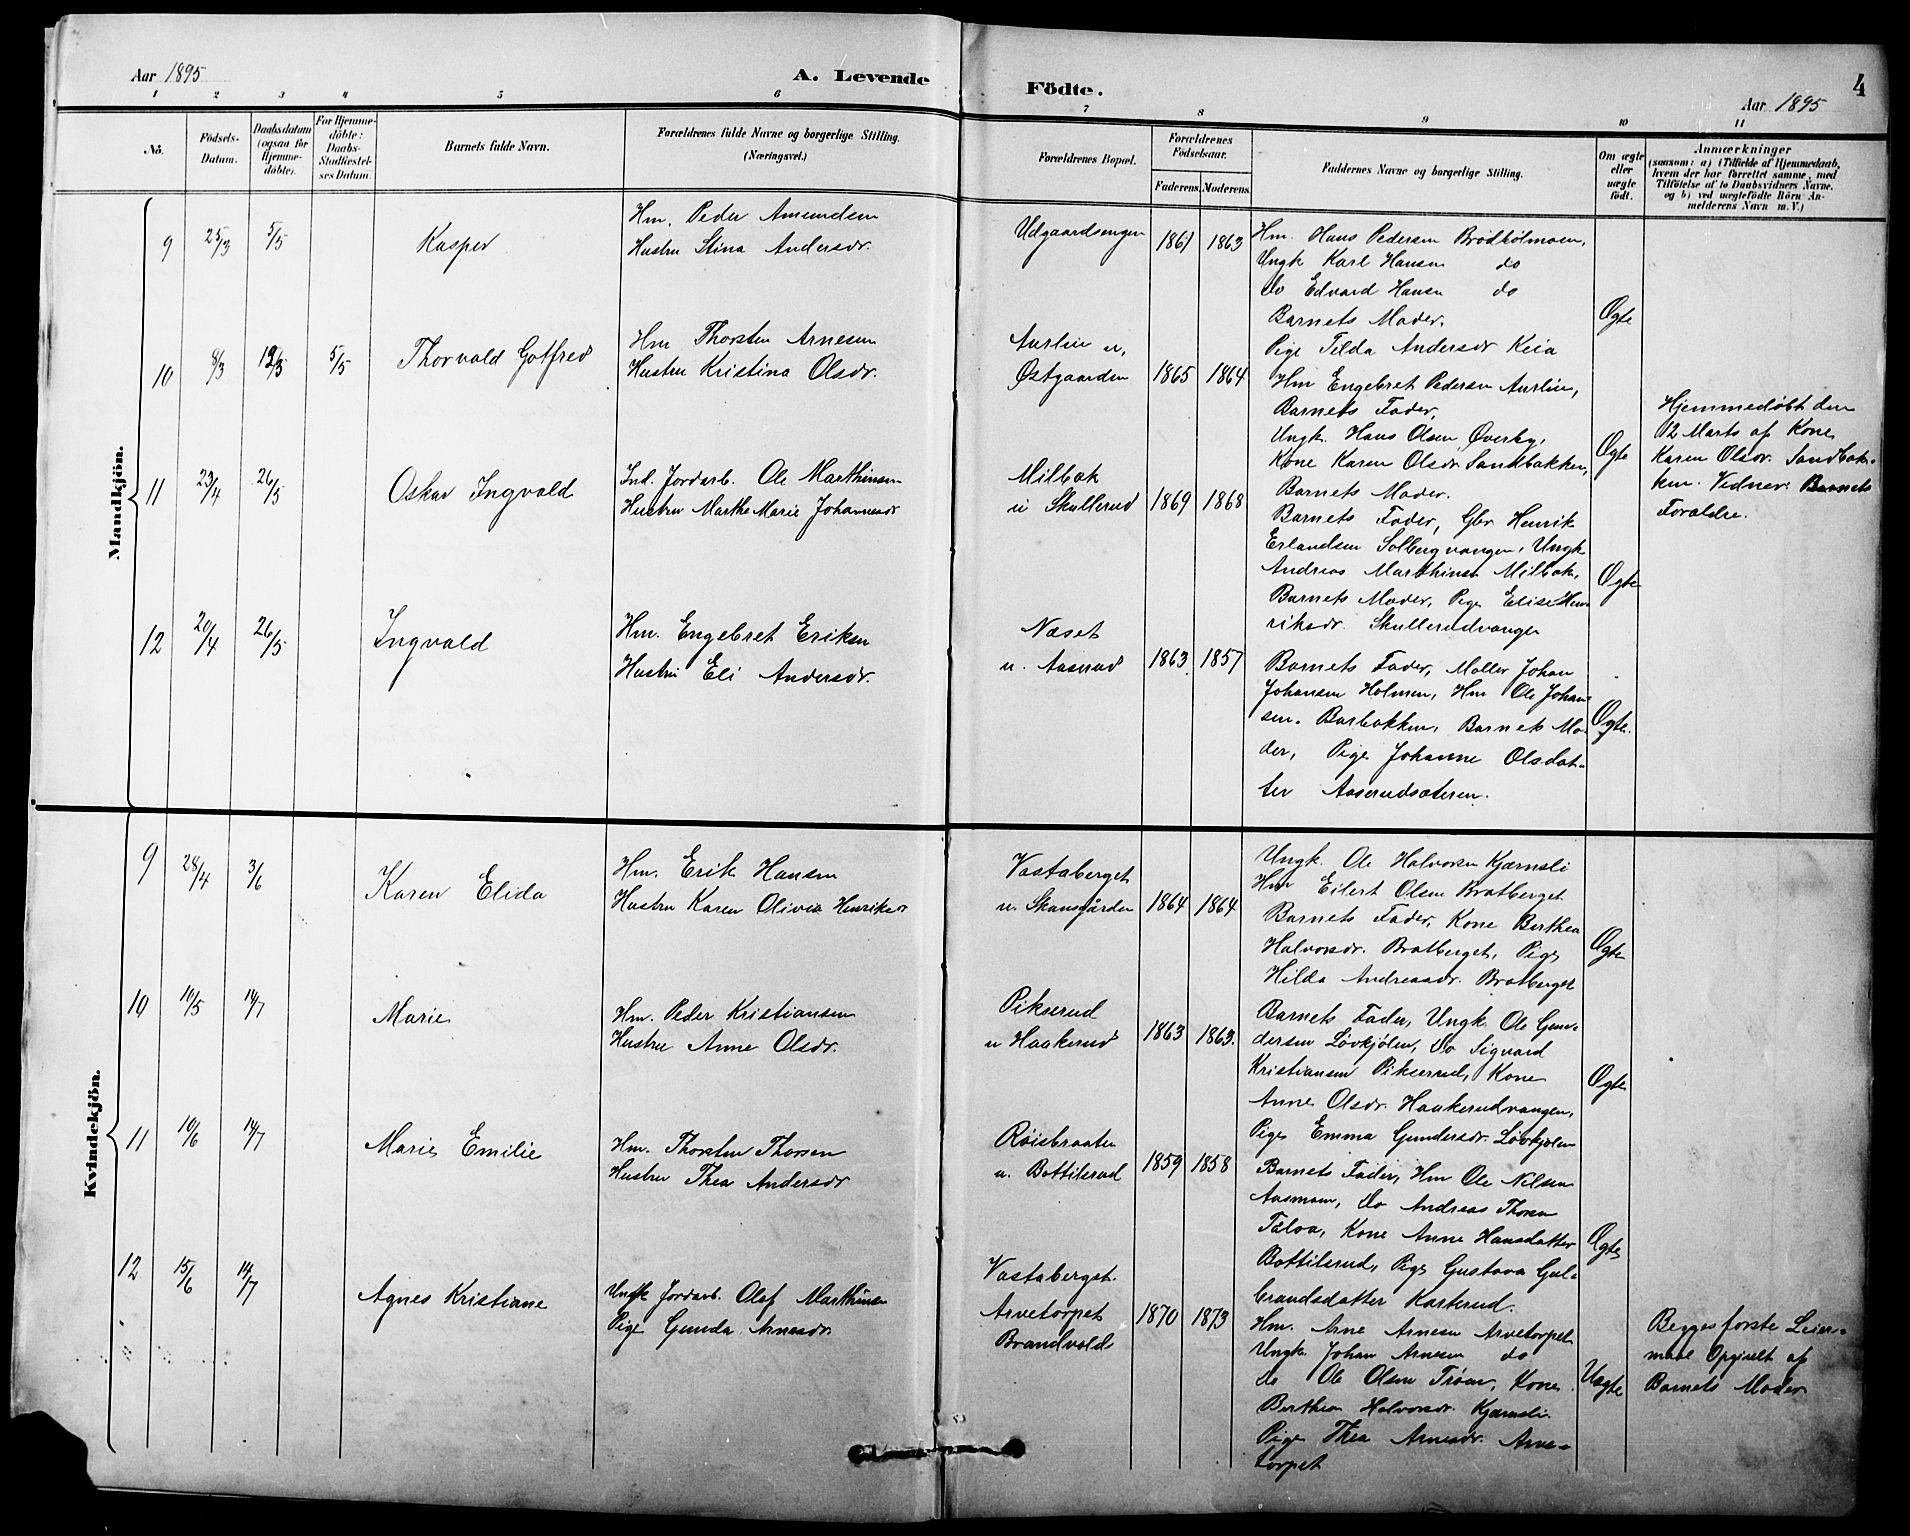 Aar 1895
A. Levende
Födte.
4
Aar 1895
1 2 3 4 5 6 7 8 9 10 11
No.
Födsels-
Datum.
Daabsdatum
(ogsaa for
Hjemme-
döbte).
For Hjemme-
döbte:
Daabs-
Stadfæstel-
ses Datum.
Barnets fulde Navn.
Forældrenes fulde Navne og borgerlige Stilling.
(Næringsvei.)
Forældrenes Bopæl.
Forældrenes
Födselsaar.
Faderens. Moderens.
Faddernes Navne og borgerlige Stilling.
Om ægte
eller
uægte
födt.
Anmærkninger
(saasom: a) i Tilfælde af Hjemmedaab,
hvem der har forrettet samme, med
Tilföielse af to Daabsvidners Navne.
og b) ved uægtefödte Börn An-
melderens Navn m. V.)
Mandkjön.
9 25/3 5/5 Kasper
Hm. Peder Amundsen
Hustru Stina Andersdr.
Udgaardsengen 1861 1863
Hm. Hans Pedersen Brødhølmoen,
Ungk Karl Hansen do
do Edvard Hansen do
Barnets Moder,
Pige Tilda Andersdr Keia
Ægte
10 8/3 12/3 5/5 Thorvald Gotfred
Hm Thorsten Arnesen
Hustru Kristina Olsdr.
Aurlien u,
Østgaarden 1865 1864
Hm Engebret Pedersen Aurlien,
Barnets Fader,
Ungk. Hans Olsen Øverby,
Kone Karen Olsdr Sandbakken,
Barnets Moder.
Ægte
Hjemmedøbt den
12 Marts af Kone
Karen Olsdr. Sandbak-
ken. Vidner: Barnets
Forældre.
11 23/4 26/5 Oskar Ingvald
Ind. Jordarb. Ole Marthinsen
Hustru Marthe Marie Johannesdr
Milbak
u Skullerud 1869 1868
Barnets Fader, Gbr Henrik
Erlandsen Solbergvangen, Ungk
Andreas Marthinsen Milbak,
Barnets Moder, Pige Elise Hen-
riksdr. Skullerudvangen
Ægte
12 20/4 26/5 Ingvald
Hm. Engebret Eriksen
Hustru Eli Andersdr.
Næset
u. Aaserud 1863 1857
Barnets Fader, Møller Johan
Johansen Holmen, Hm Ole Johan-
sen. Barbakken, Barnets Mo-
der, Pige Johanne Olsdat-
ter Aaserudsæteren.
Ægte.
Kvindekjön.
9 28/4 3/6 Karen Elida
Hm. Erik Hansen
Hustru Karen Olivia Henriksdr
Vastaberget
u. Skansgården 1864 1864
Ungk. Ole Halvorsen Kjærnsli
Hm Eilert Olsen Bratberget
Barnets Fader, Kone Berthea
Halvorsdr. Bratberget, Pige
Hilda Andreasdr. Bratberget
Ægte
10 10/5 14/7 Marie
Hm. Peder Kristiansen
Hustru Anne Olsdr.
Pikserud
u Haakerud 1863 1863.
Barnets Fader, Ungk. Ole Gun-
dersen Løvkjølen, Do Sigvard
Kristiansen Pikserud, Kone
Anne Olsdr. Haakerudvangen,
Pige Emma Gundersdr. Løvkjølen
Ægte
11 10/6 14/7 Marie Emilie
Hm. Thorsten Thorsen
Hustru Thea Andersdr
Røisbraaten
u. Bottilsrud 1859 1858
Barnets Fader, Hm Ole Nilsen
Aasmoen, Do Andreas Thorsen
Taloa, Kone Anne Hansdatter
Bottilsrud, Pige Gustava Gul-
brandsdatter Kasterud.
Ægte
12 15/6 14/7 Agnes Kristiane
Ungk Jordarb. Olaf Marthinsen
Pige Gunda Arnesdr
Vastaberget.
Arvetorpet
Brandvold 1870 1873
Hm. Arne Arnesen Arvetorpet
Ungk Johan Arnesen do
do Ole Olsen Trøen, Kone
Berthea Halvorsdr. Kjærnsli.
Pige Thea Arnesdr. Arve-
torpet
Uægte
Begges første Leier-
maal Opgivelt af
Barnets Moder